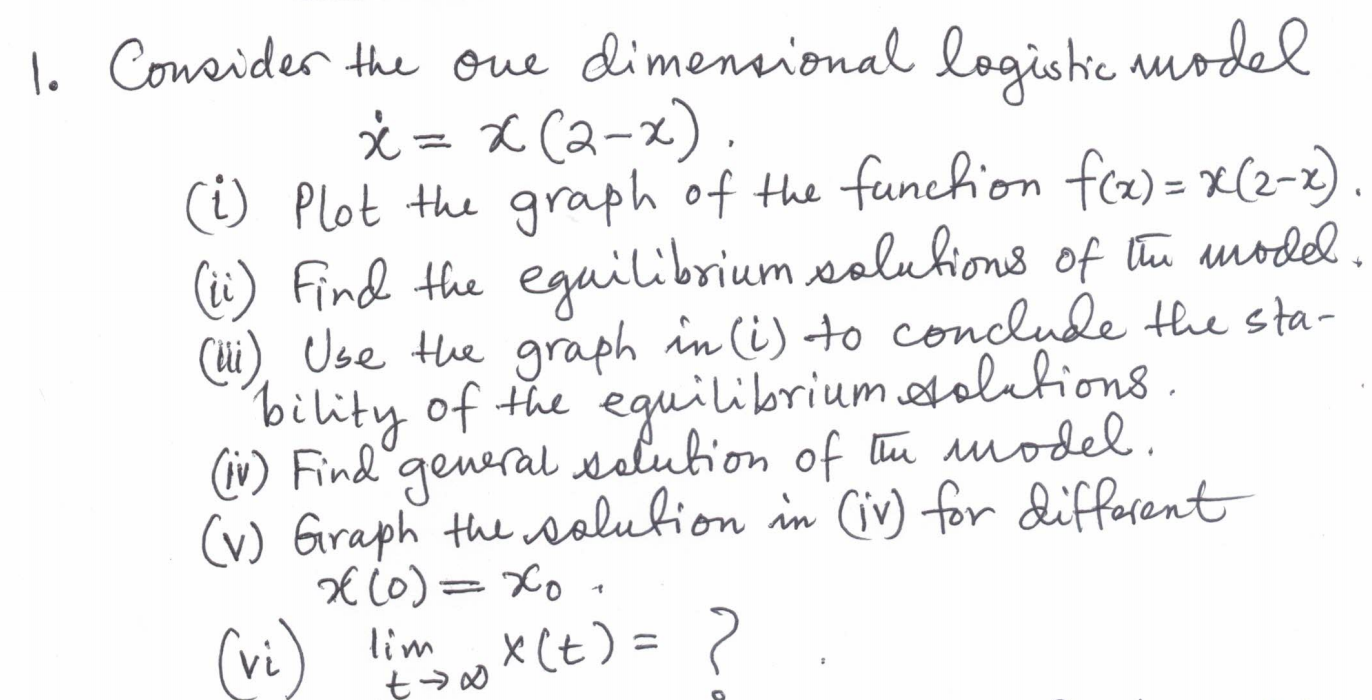 1. Consider the one dimensional logistic model
ẋ = x(2-x).
(i) Plot the graph of the function f(x) = x(2-x).
(ii) Find the equilibrium solutions of the model.
(iii) Use the graph in (i) to conclude the sta-
bility of the equilibrium solutions.
(iv) Find general solution of the model.
(v) Graph the solution in (iv) for different
x(0) = x₀.
(vi) lim x(t) = ?
t→∞